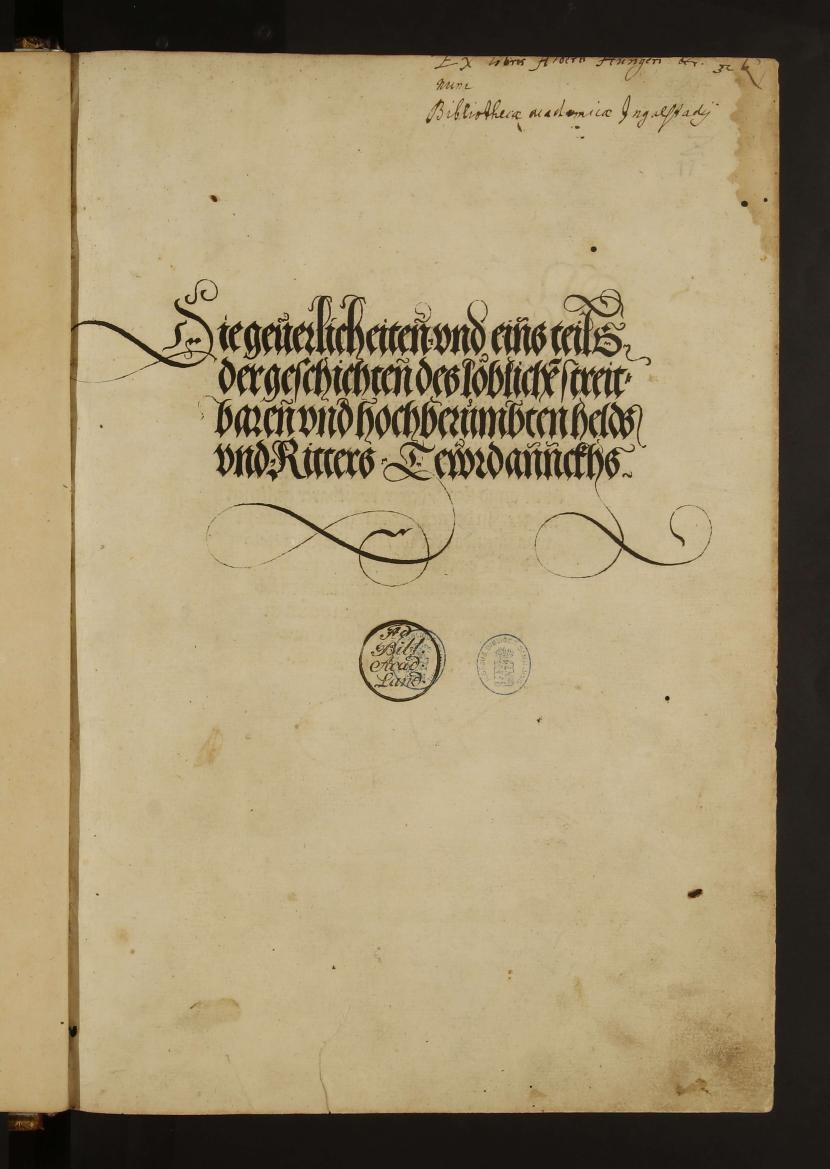 Ex libris Alberti Hungeri
nunc
Bibliothecæ academicæ Ingolstadij
Die geüerlicheiteñ vnd eiñs teils
der geschichteñ des löblichẽ streit⸗
bareñ vnd hochberümbten helds
vnd Ritters Tewrdañnckhs
Ad
Bibl.
Acad.
Land.